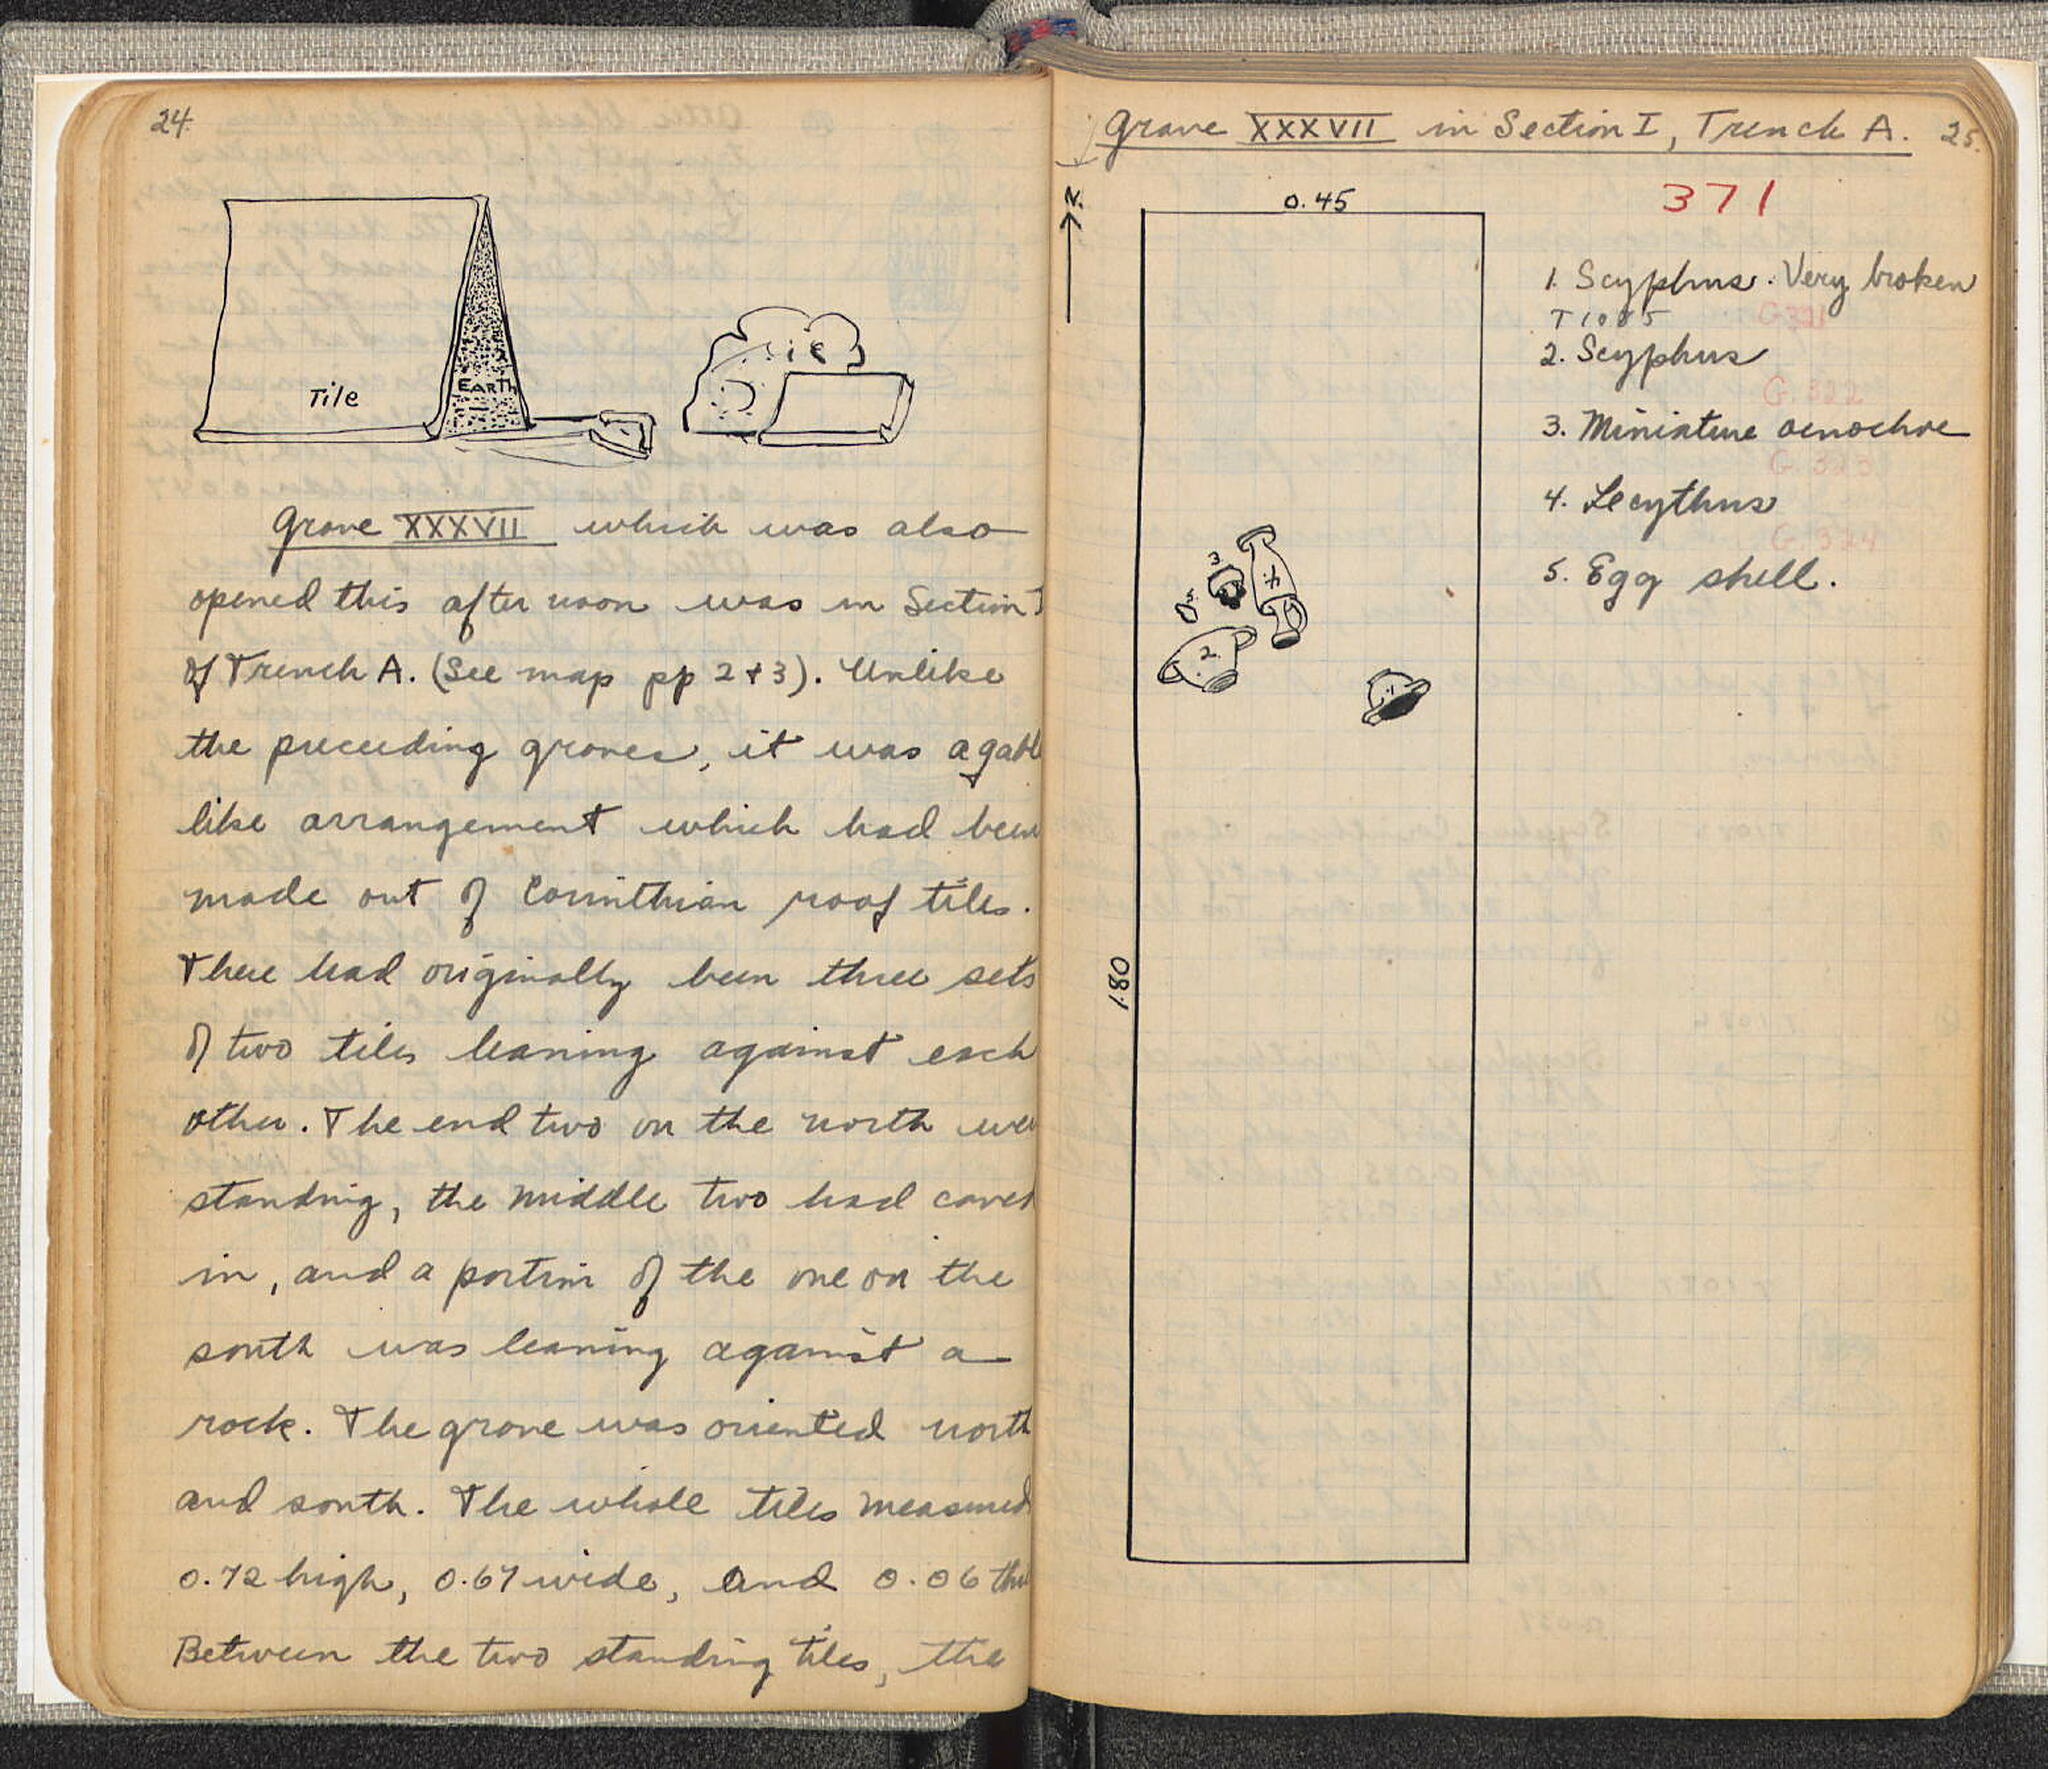 24.
Tile
EARTH
Grave XXXVII which was also
opened this afternoon was in Section I
of Trench A. (See map pp 2 + 3). Unlike
the preceeding graves, it was a gable
like arrangement which had been
made out of Corinthian roof tiles.
There had originally been three sets
of two tiles leaning against each
other. The end two on the north were
standing, the middle two had caved
in, and a portion of the one on the
south was leaning against a
rock. The grave was oriented north
and south. The whole tiles measured
0.72 high, 0.67 wide, and 0.06 thi
Between the two standing tiles, the
Grave XXXVII in Section I, Trench A. 25.
N.
0.45
371
1. Scyphus. Very broken
T 1085
G 321
2. Scyphus
G. 322
3. Miniature oenochoe
G. 323
4. Lecythus
G. 324
5. Egg shell.
3
4.
5.
2.
1.
1.80